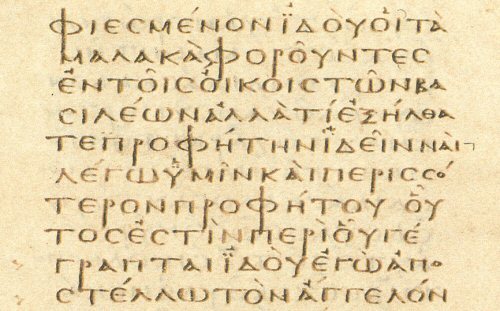 ΦΙΕΣΜΈΝΟΝΪΔΟῪΟἹΤᾺ
ΜΑΛΑΚᾺΦΟΡΟΥ͂ΝΤΕΣ
ἘΝΤΟΙ͂ΣΟἼΚΟΙΣΤΩ͂ΝΒΑ
ΣΙΛΈΩΝἈΛΛᾺΤΊἘΞΉΛΘΑ
ΤΕΠΡΟΦΉΤΗΝΪΔΕΙ͂ΝΝΑῚ
ΛΈΓΩΫΜΙ͂ΝΚΑῚΠΕΡΙΣΣΌ
ΤΕΡΟΝΠΡΟΦΉΤΟΥ ΟὟ
ΤΟΣἘΣΤῚΝΠΕΡῚΟὟΓΈ
ΓΡΑΠΤΑΙΪΔΟῪἘΓῺἈΠΟ
ΣΤΈΛΛΩΤῸΝἌΓΓΕΛΌΝ